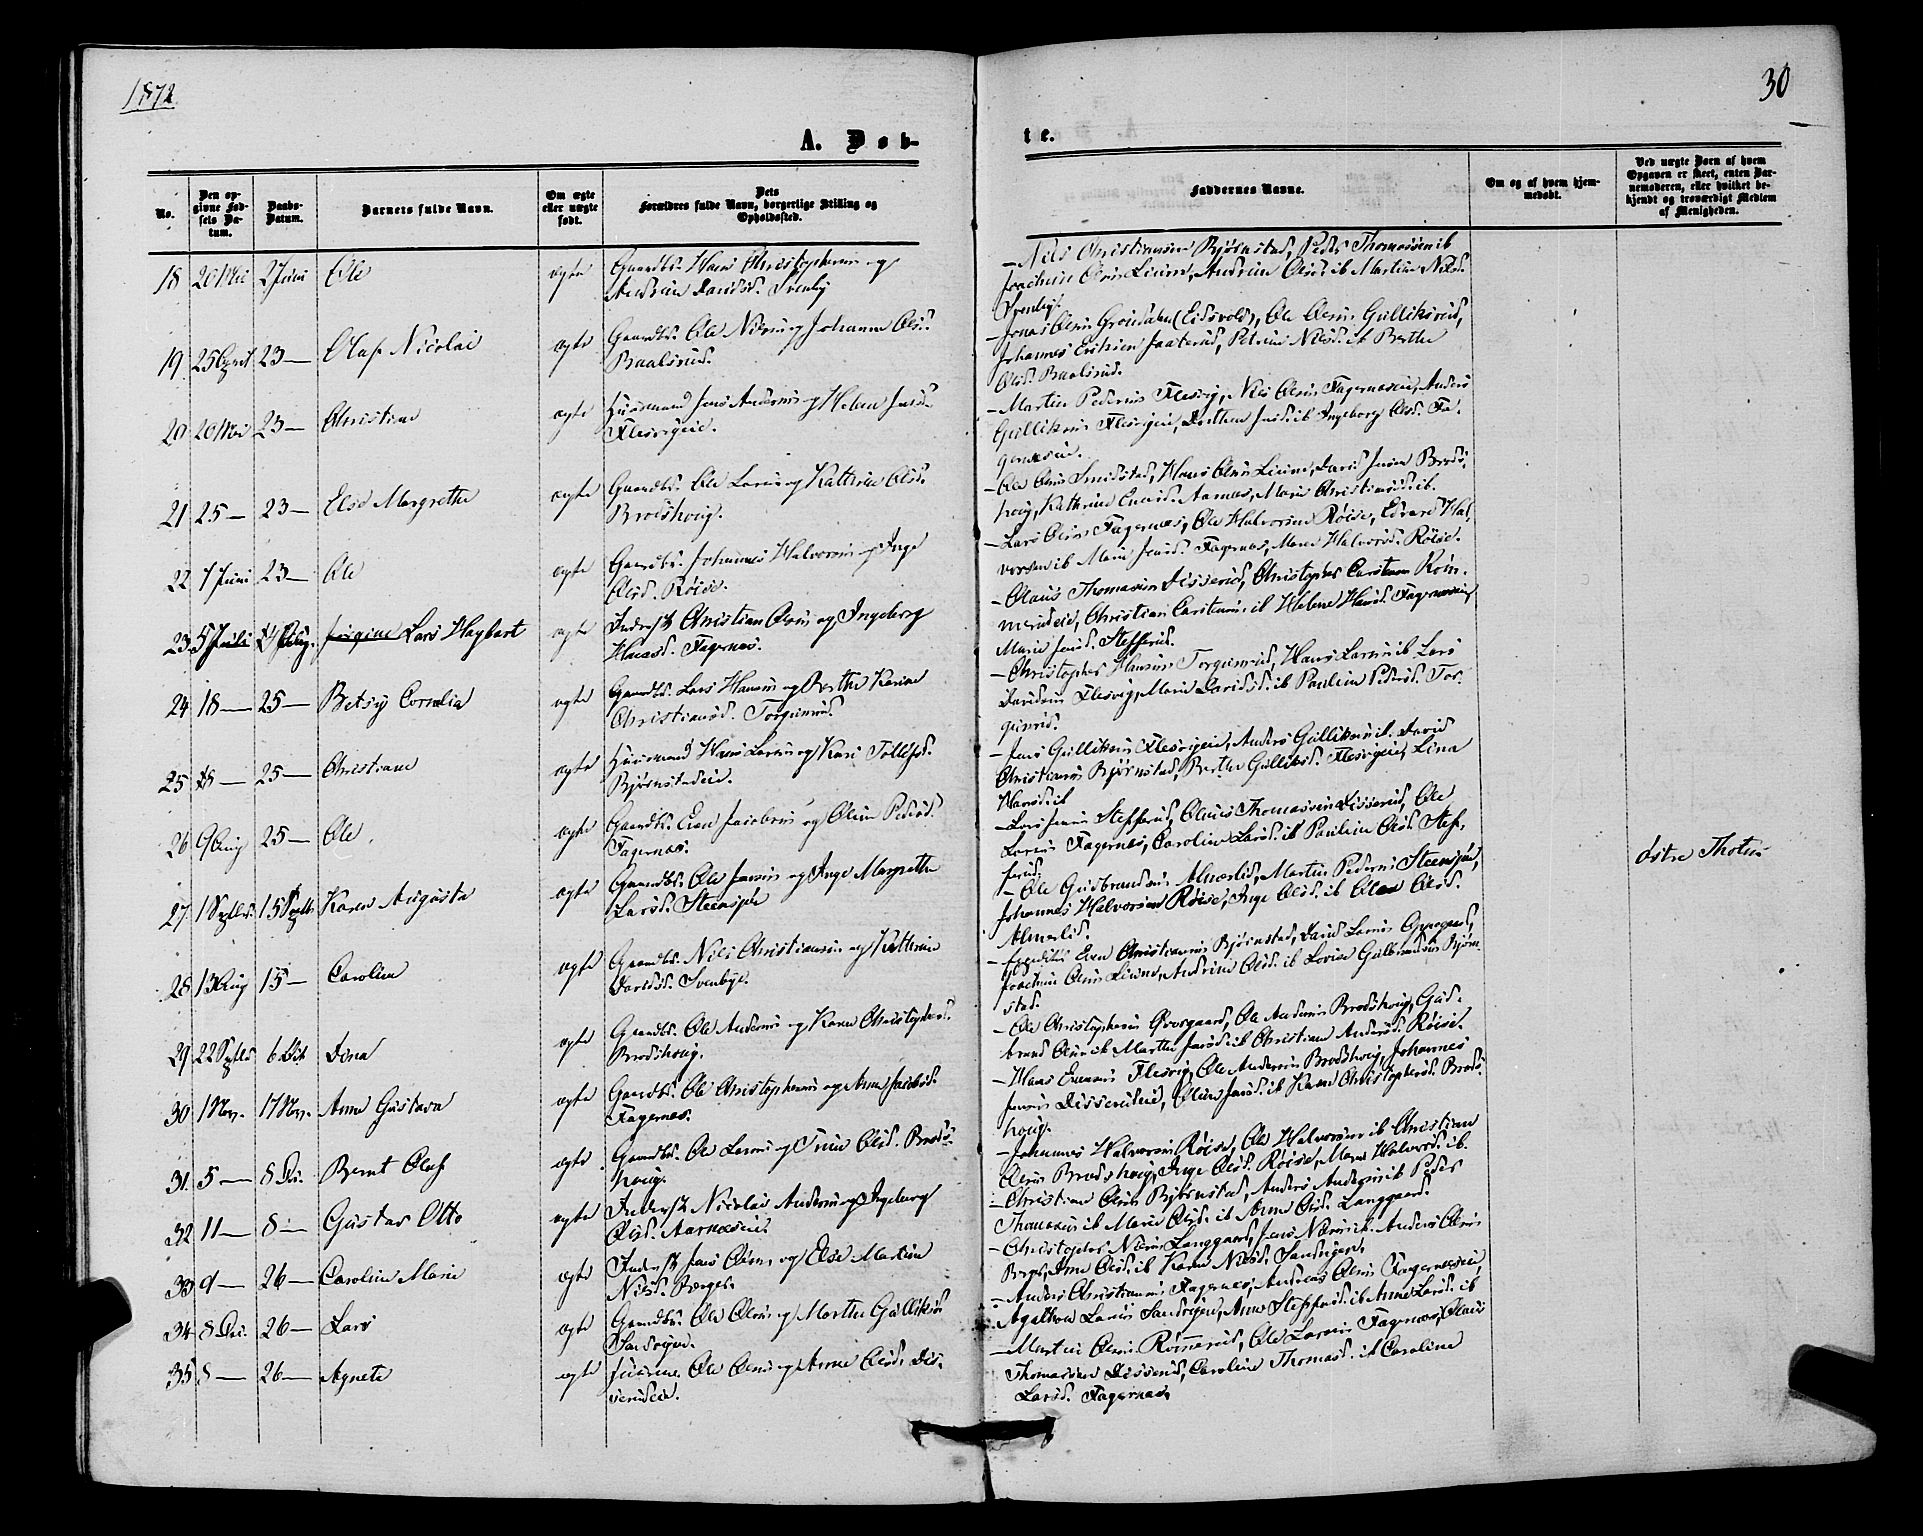 1872
30
A. Døb-
te.
No.
Den op-
givne Fød-
sels Da-
tum.
Daabs-
Datum.
Barnets fulde Navn.
Om ægte
eller uægte
født.
Dets
Forældres fulde Navn, borgerlige Stilling og
Opholdssted.
Faddernes Navne.
Om og af hvem hjem-
medøbt.
Ved uægte Børn af hvem
Opgaven er skeet, enten Bar-
nemoderen, eller hvilket be-
kjendt og troværdigt Medlem
af Menigheden.
18 20 Mai 2 Juni Ole ægte Gaardbr. Hans Christophersen og
Andrine Davidsd. Svenby
- Nils Christiansen Bjørnstad, Peder Thomassen ib
Joachim Olsen Lium, Andrine Olsd. ib Martin Nilsd.
Svenby.
19 25 April 23 — Olaf Nicolai ægte Gaardbr. Ole Nilsen og Johanne Olsd.
Baalsrud.
- Jonas Olsen (Eidsvold), Ole Olsen Gulliksrud,
Johannes Eriksen Jaaterud, Petrine Nilsd. ib Berthe
Olsd. Baalsrud.
20 20 Mai 23 — Christine ægte Huusmand Jens Andersen og Helene Jensd.
Flesvigeie.
- Martin Pedersen Flesvig, Nils Olsen Fagernæseie, Anders
Gulliksen Flesvigeie, Dorthea Jensd. ib Ingeborg Olsd. Fa-
gernæseie.
21 25 — 23 — Else Margrethe ægte Gaardbr. Ole Larsen og Kathrine Olsd.
Brodshoug.
- Ole Olsen Smedstad, Hans Olsen Lium, David Jensen Brods-
houg, Kathrine Evensd. Aarnæs, Marie Christiansd. ib.
22 7 Juni 23 — Ole ægte Gaardbr. Johannes Halvorsen og Inge
Olsd. Røise.
- Lars Olsen Fagernæs, Ole Halvorsen Røise, Edvard Hal-
vorsen ib Marie Jensd. Fagernæs, Maren Halvorsd. Røise.
23 5 Juli 24 Aug. Lars Hagbart ægte Inderst Christian Olsen og Ingeborg
Hansd. Fagernæs.
- Olaus Thomassen Disserud, Christopher Carstensen Røm-
merudeie, Christian Carstensen ib Helene Hansd. Fagernæseie,
Marie Jensd. Stefferud.
24 18 — 25 — Betsy Cornelia ægte Gaardbr. Lars Hansen og Berthe Karine
Christiansd. Torgunrud.
- Christopher Hansen Torgunrud, Hans Larsen ib Lars
Davidsen Flesvig, Marie Davidsd. ib Pauline Pedersd. Tor-
gunrud.
25 18 — 25 — Christiane ægte Huusmand Hans Larsen og Kari Tollefsd.
Bjørnstadeie.
- Jens Gulliksen Flesvigeie, Anders Gulliksen ib. David
Christiansen Bjørnstad, Berthe Gulliksd. Flesvigeie, Lina
Hansd. ib
26 9 Aug 25 — Ole ægte Gaardbr. Even Jacobsen og Oline Pedersd.
Fagernæs.
- Lars Jensen Stefferud, Olaus Thomassen Disserud, Ole
Larsen Fagernæs, Caroline Larsd. ib Pauline Olsd. Stef-
ferud.
Østre Thoten
27 1 Septbr. 15 Septbr. Karen Augusta ægte Gaardbr. Ole Jensen og Inge Margrethe
Larsd. Steensjø
- Ole Gudbrandsen Almerlid, Martin Pedersen Steensjø,
Johannes Halvorsen Røise, Inge Olsd. ib Olea Olsd.
Almerlid.
28 13 Aug 15 — Caroline ægte Gaardbr. Nils Christiansen og Kathrine
Davidsd. Svenbye.
- Even Christiansen Bjørnstad, David Larsen
Joachim Olsen Lium, Andrine Olsd. ib Lovise Gulbrandsen Bjørn-
stad.
29 22 Septbr 6 Oct. Dina ægte Gaardbr. Ole Andersen og Karen Christophersd.
Brodshoug.
- Ole Christophersen Qvorgaard, Ole Andersen Brodshoug, Gud-
brand Olsen ib Marthe Jensd. ib Christiane Andersd. Røise.
30 1 Nov. 17 Nov. Anne Gustava ægte Gaardbr. Ole Christophersen og Anne Jacobsd.
Fagernæs.
- Hans Evensen Flesvig, Ole Andersen Brodshoug, Johannes
Jensen Disserudeie, Oline Jensd. ib Karen Christophersd. Brods-
houg.
31. 5 — 8 De. Bernt Oluf ægte Gaardbr. Ole Larsen og Trine Olsd. Brods-
houg.
- Johannes Halvorsen Røise, Ole Halvorsen ib Christian
Olsen Brodshoug, Inge Olsd. Røise, Maren Halvorsd. ib.
32 11 — 8 — Gustav Otto ægte Inderst Nicolai Andersen og Ingeborg
Olsd. Aarnæseie.
- Christian Olsen Bjørnstad, Anders Andersen ib Peder
Thomassen ib Marie Olsd. ib Anne Olsd. Langgaard.
33 9 — 26 — Caroline Marie ægte Inderst Jens Olsen og Else Martine
Nilsd. Berger.
- Christopher Nilsen Langgaard, Jens Nilsen ib Anders Olsen
Berger, Anne Olsd. ib Karen Nilsd. Sandvigen.
34 8 De. 26 — Lars ægte Gaardbr. Ole Olsen og Marthe Gulliksd.
Sandvigen.
- Anders Christiansen Fagernæs, Andreas Olsen Fagernæseie,
Agathon Larsen Sandvigen, Anne Steffensd. ib Anne Larsd. ib
35 8 — 26 — Agnete ægte Huusm. Ole Olsen og Anne Olsd. Dis-
serudeie.
- Martin Olsen Rømmerud, Ole Larsen Fagernæs, Olaus
Thomassen Disserud, Caroline Thomasd. ib Caroline
Larsd. Fagernæs.